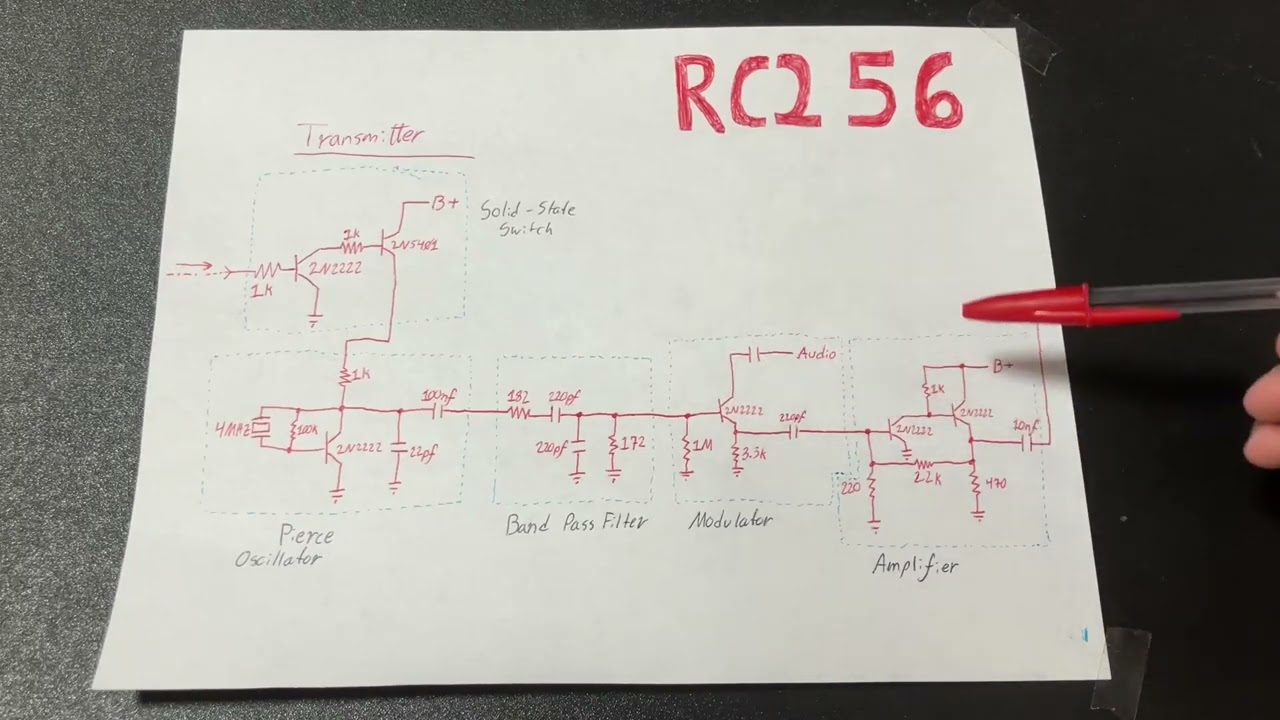 RC256
Transmitter
B+
Solid-State
Switch
1k
2N5401
2N2222
1k
1k
Audio
B+
1k
100nf
182
220pf
2N2222
2N2222
4MHz
100k
220pf
2N2222
10nf
2N2222
22pf
220pf
172
1M
3.3k
22k
220
470
Pierce
Oscillator
Band Pass Filter
Modulator
Amplifier